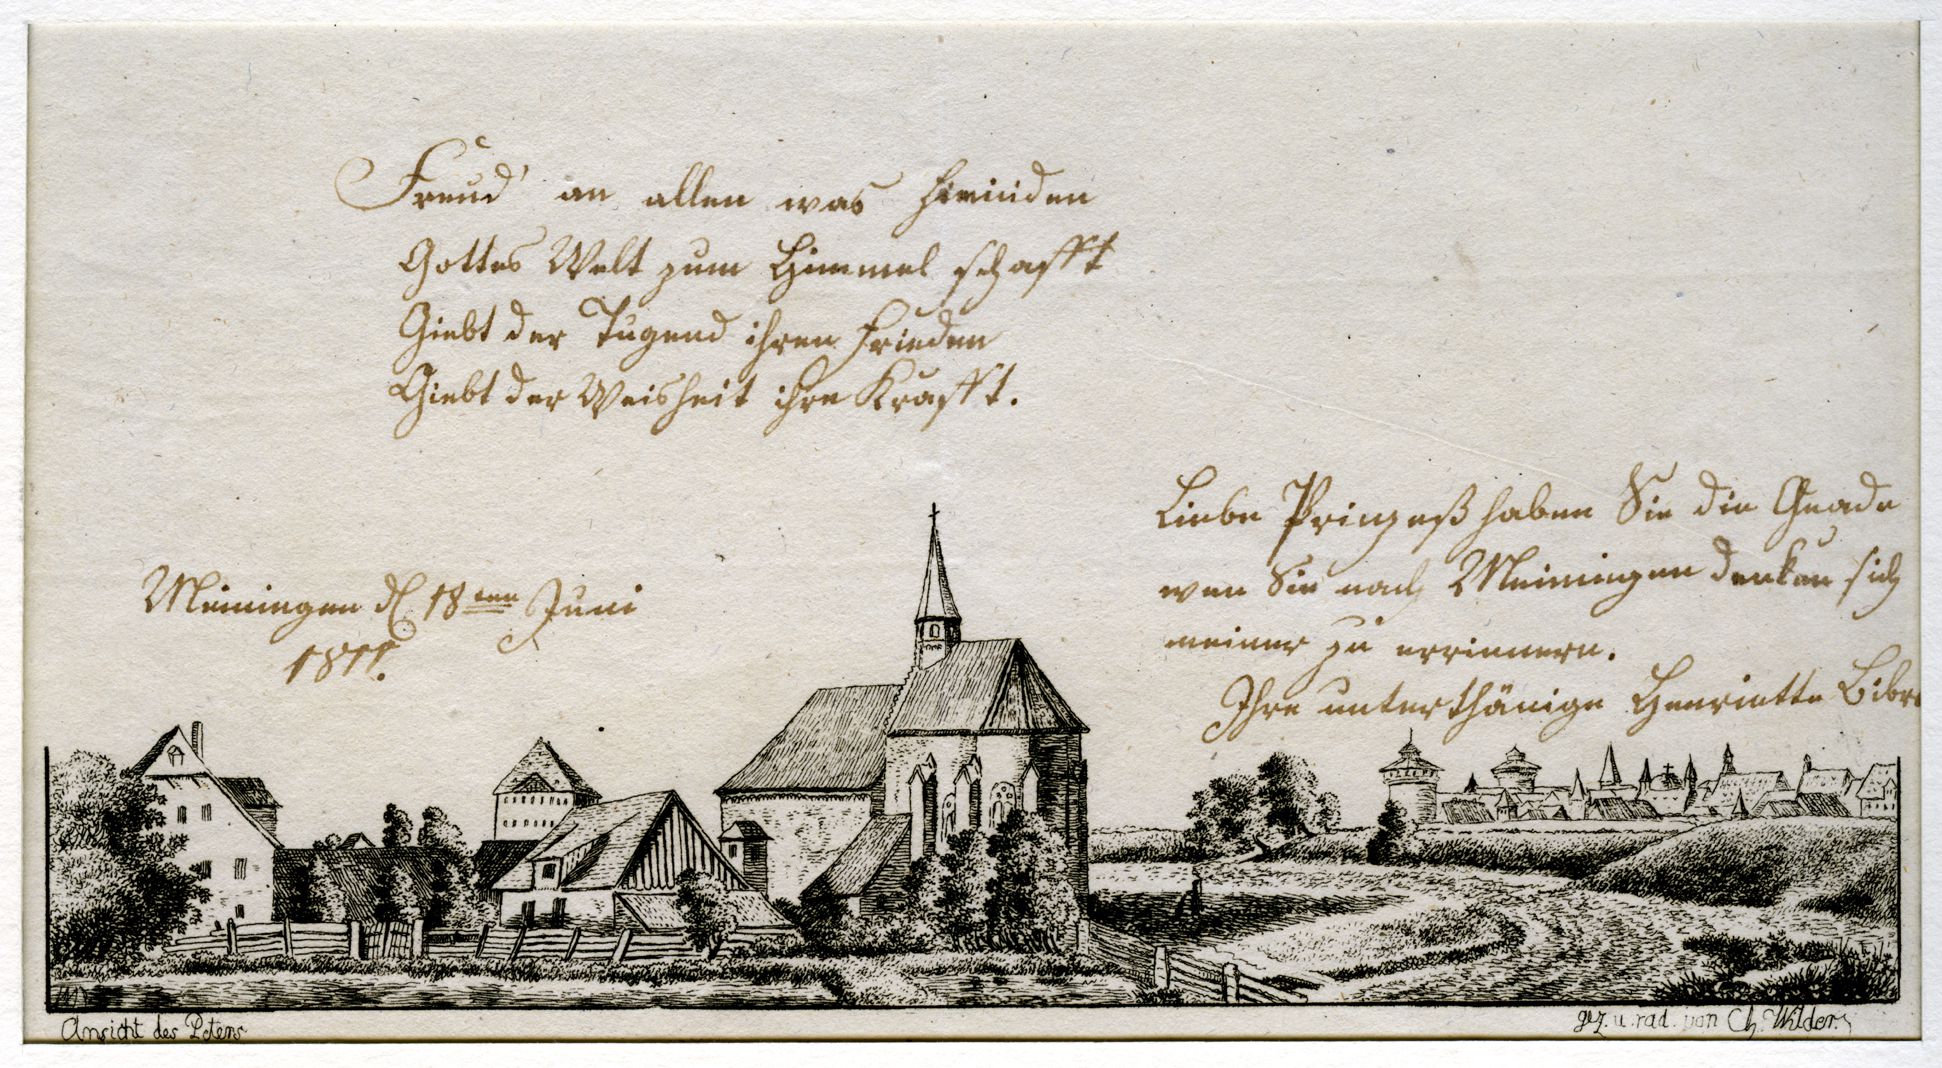 Freud' an allen was hienieden
Gottes Welt zum Himmel schafft
Giebt der Tugend ihren Frieden
Giebt der Weisheit ihre Krafft.
Meiningen d. 18ten Juni
1811.
Liebe Prinzeß haben Sie die Gnade
wen Sie nach Meiningen denken sich
meiner zu errinnern.
Ihre unterthänige Henriette Bibra
Ansicht des Peters
gez. u. rad. von Ch. Wilder.